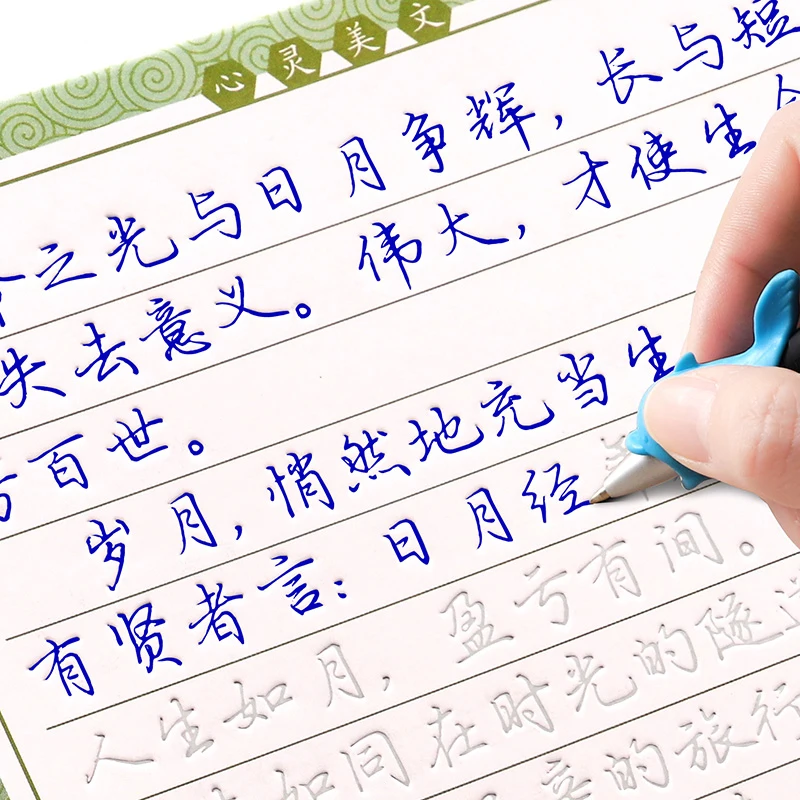 心灵美文
之光与日月争辉，长与短
失去意义。伟大，才使生命
百世。
岁月，悄然地充当生
有贤者言：日月经
人生如月，盈亏有间。
如同在时光的隧道
的旅行